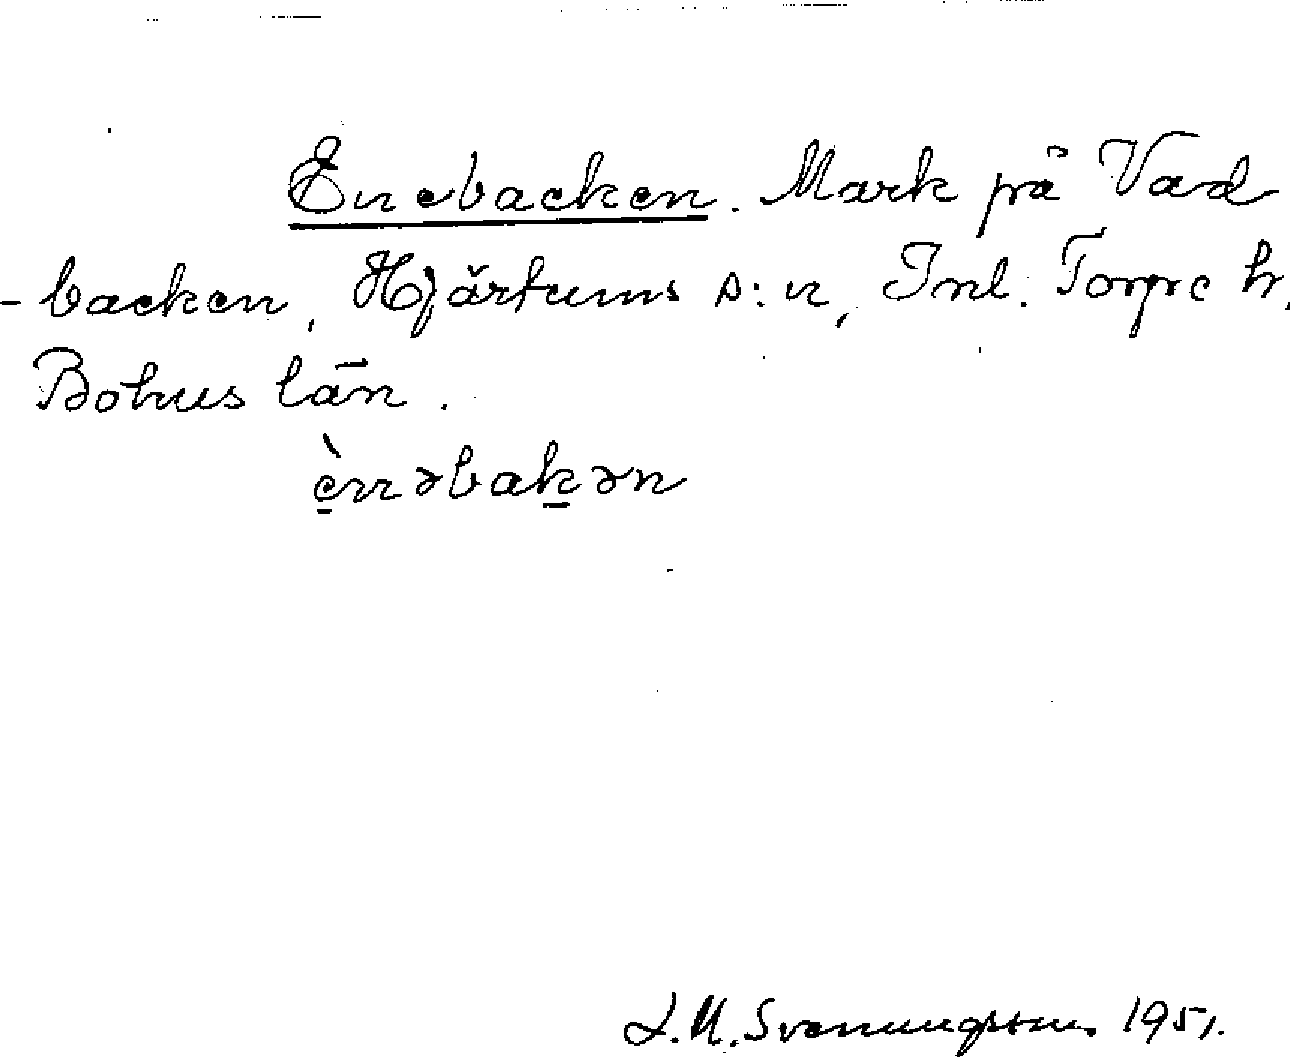 Enebacken. Mark på Vad
-backen, Hjärtums s:n, Inl. Torpe h.
Bohus län.
ènnəbakən
L.M. Svenungsson 1951.